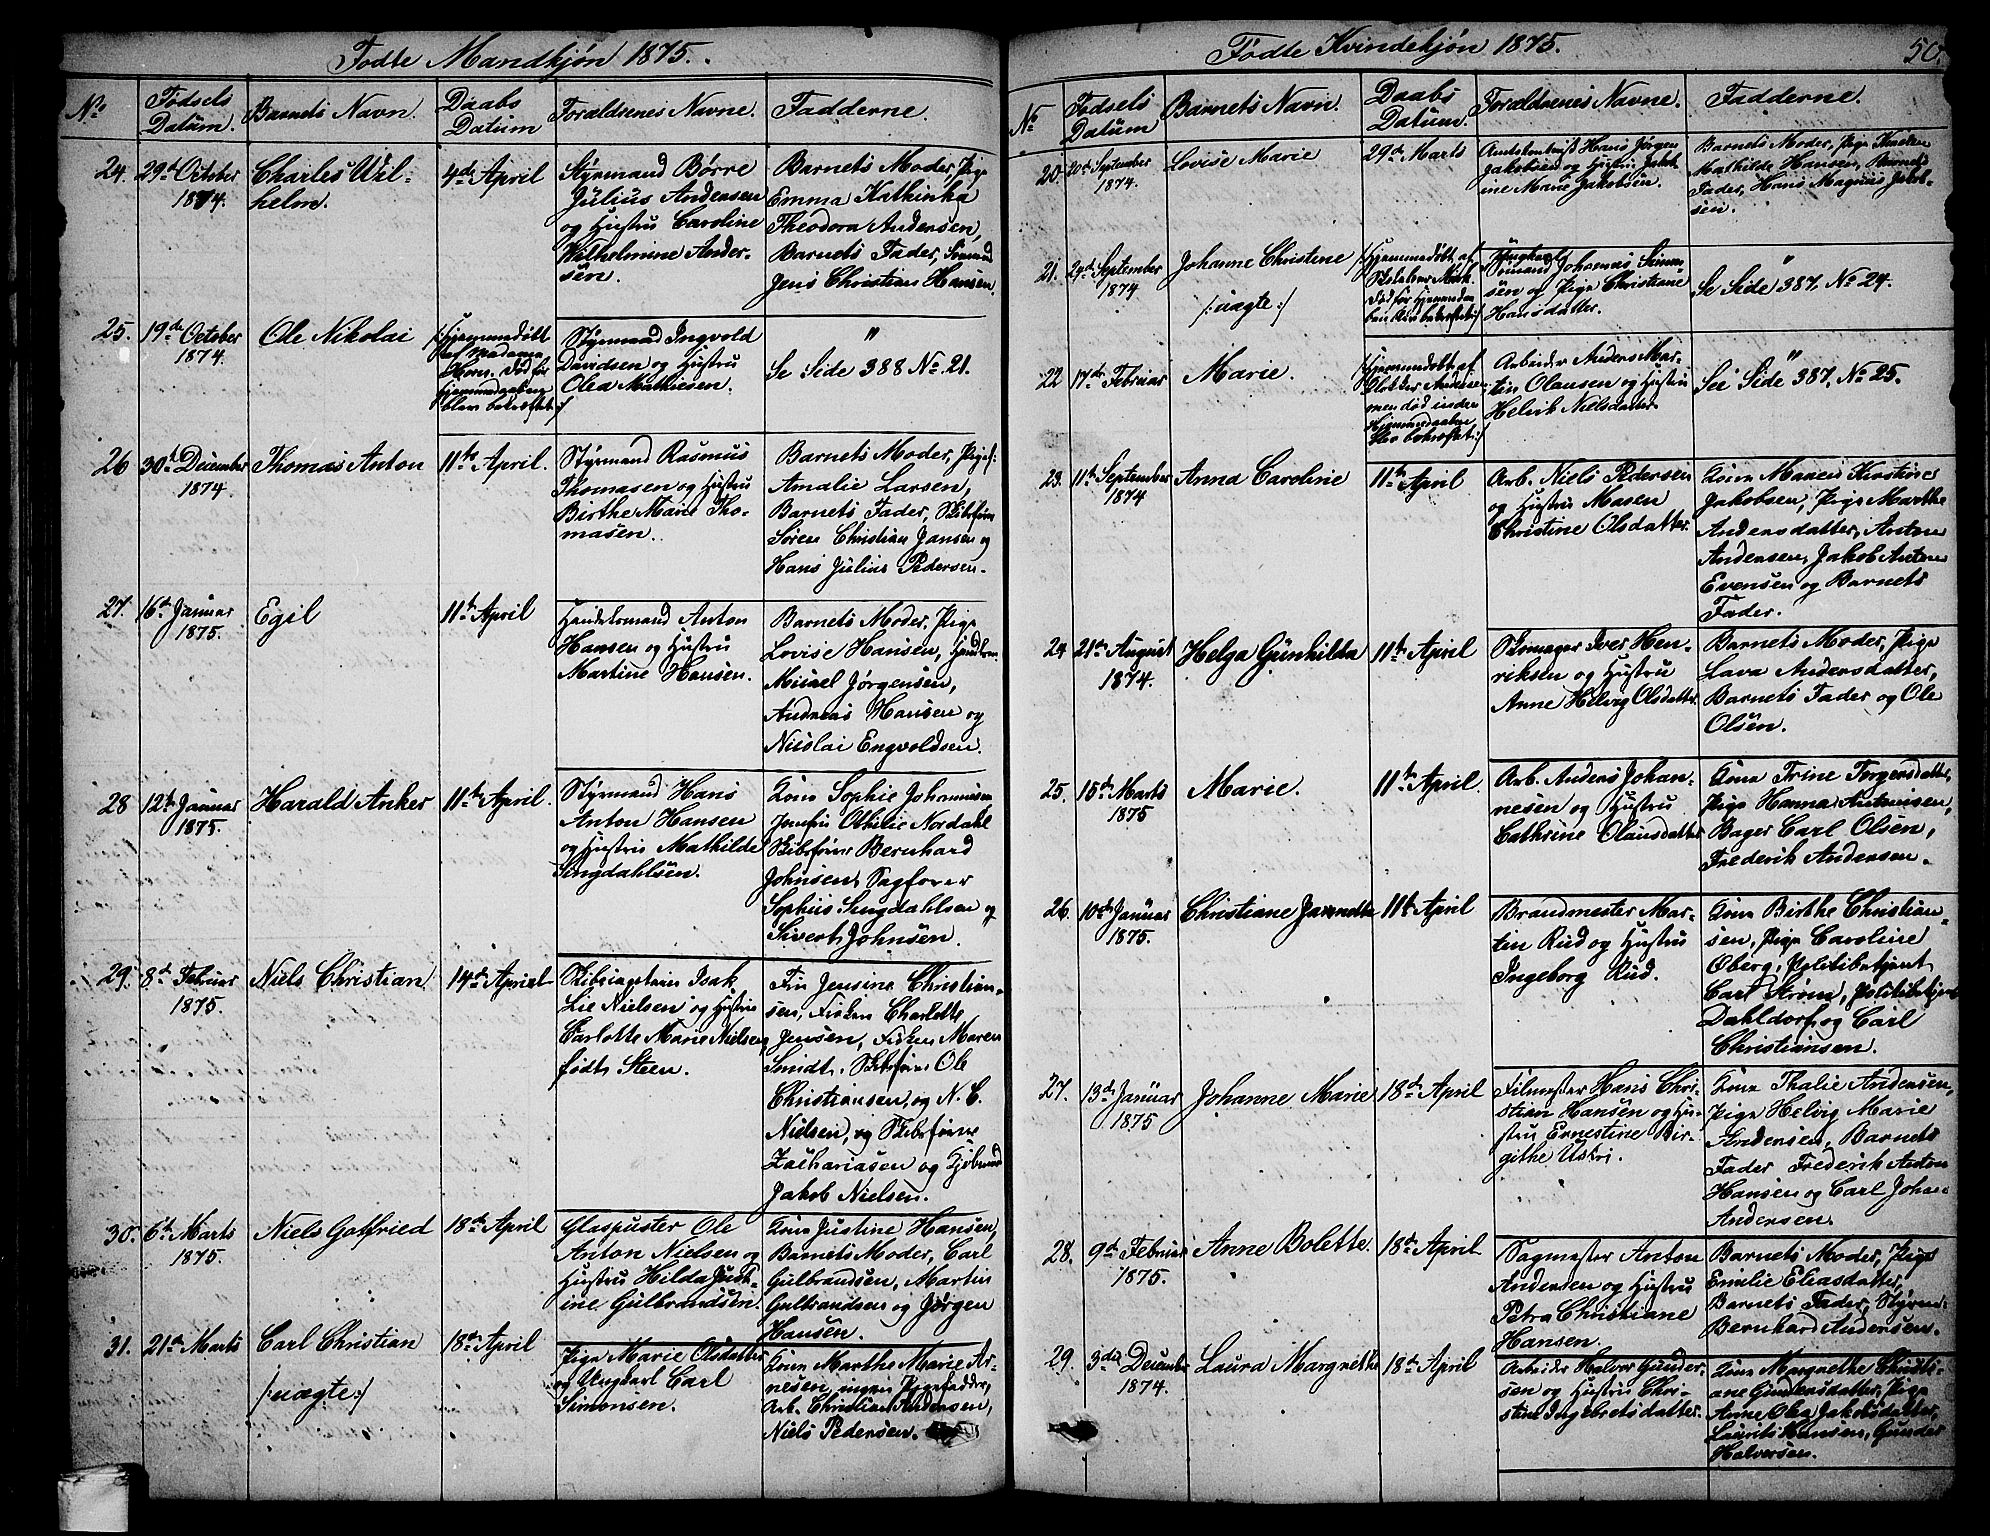 Fødte Mandkjøn 1875.
No
Fødsels
Datum.
Barnets Navn.
Daabs
Datum
Forældrenes Navne.
Fadderne.
24.
29de October
1874.
Charles Wil-
helm.
4de April
Styrmand Børre
Julius Andersen
og Hustru Caroline
Wilhelmine Ander-
sen.
Barnets Moder, Pige
Emma Kathinka
Theodora Andersen,
Barnets Fader, Sømand
Jens Christian Hansen.
25.
19de October
1874.
Ole Nikolai
/:Hjemmedøbt
af Madame
Horn. Død før
hjemmedaaben
blev bekræftet:/
Styrmand Ingvold
Davidsen og Hustru
Olea Mathiesen.
"
Se Side 388 No 21.
26
30te December
1874.
Thomas Anton
11te April.
Styrmand Rasmus
Thomasen og Hustru
Birthe Marie Tho-
masen.
Barnets Moder, Pige
Amalie Larsen,
Barnets Fader, Skibsfører
Søren Christian Jansen og
Hans Julius Pedersen.
27.
16de Januar
1875.
Egil
11te April
Handelsmand Anton
Hansen og Hustru
Martine Hansen.
Barnets Moder, Pige
Lovise Hansen,
Mikael Jørgensen,
Andreas Hansen og
Nicolai Engvoldsen.
28
12te Januar
1875.
Harald Anker
11te April.
Styrmand Hans
Anton Hansen
og Hustru Mathilde
Singdahlsen.
Kone Sophie Johannisen
Jomfru Othilie Nordahl
Skibsfører Bernhard
Johnsen, Sagfører
Sophus Singdahlsen og
Sivert Johnsen.
29.
8de Februar
1875.
Niels Christian
14de April
Skibscaptain Isak
Lie Nielsen og Hustru
Carlotte Marie Nielsen
født Steen.
Fru Jensine Christian-
sen, Frøken Charlotte
Jensen, Frøken Maren
Smidt, Skibsfører Ole
Christiansen, og N. C.
Nielsen, og Skibsfører
Zachariasen og Kjøbmand
Jakob Nielsen.
30.
6te Marts
1875.
Niels Gotfried
18de April
Glaspuster Ole
Anton Nielsen og
Hustru Hilda Just-
ine Gulbrandsen.
Kone Justine Hansen,
Barnets Moder, Carl
Gulbrandsen, Martin
Gulbrandsen og Jørgen
Hansen.
31.
21de Marts
Carl Christian
/:uægte:/
18de April
Pige Marie Olsdatter
og Ungkarl Carl
Simonsen.
Kone Marthe Marie Ar-
nesen, ingen Pigefadder,
Arb. Christian Andersen,
Niels Pedersen.
Fødte Kvindekjøn 1875.
50.
No
Fødsels
Datum
Barnets Navn.
Daabs
Datum.
Forældrenes Navne.
Fadderne.
20.
20de September
1874.
Lovise Marie
29de Marts
Hans Jørgen
Jakobsen og Hustru Jakob-
ine Marie Jakobsen.
Barnets Moder, Pige
Mathilde Hansen, Barnets
Fader, Hans Magnus Jakob-
sen.
21.
24de September
1874
Johanne Christine
/:uagte:/
/:Hjemmedøbt af
Død før Hjemmedaa-
ben blev bekræftet:/
Ungkarl
Sømand Johannes Simon-
sen og Pige Christiane
Hansdatter.
"
Se Side 387. No 24.
22
17de Februar
Marie.
/:Hjemmedøbt af
Andersen
men død inden
Hjemmedaaben
blev bekræftet:/
Arbeider Anders Mar-
tin Olausen og Hustru
Helvik Nielsdatter.
"
See Side 387. No 25.
23.
11te September
1874
Anna Caroline
11te April
Arb. Niels Pedersen
og Hustru Maren
Christine Olsdatter.
Kone Maren Kirstine
Jakobsen, Pige Marthe
Andersdatter, Anton
Andersen, Jakob Anton
Evensen og Barnets
Fader.
24
21de August
1874.
Helga Gunhilda
11te April
Skomager Iver Hen-
riksen og Hustru
Anne Helvig Olsdatter.
Barnets Moder, Pige
Lava Andersdatter,
Barnets Fader og Ole
Olsen.
25.
15de Marts
1875
Marie.
11te April
Arb. Anders Johan-
nesen og Hustru
Cathrine Olausdatter
Kone Trine Torgersdatter,
Pige Hanna Antonisen,
Bager Carl Olsen,
Frederik Andersen.
26.
10de Januar
1875.
Christiane Jannette
11te April
Brandmester Mar-
tin Rud og Hustru
Ingeborg Rud.
Kone Birthe Christian-
sen, Pige Caroline
Oberg, Politibetjent
Carl Strøm, Politibetjent
Dahldorf og Carl
Christiansen.
27.
13de Januar
1875
Johanne Marie
18de April
Filmester Hans Chri-
stian Hansen og Hu-
stru Ernestine Bir-
githe Ustri.
Kone Thalie Andersen,
Pige Helvig Marie
Andersen, Barnets
Fader Frederik Anton
Hansen og Carl Johan
Andersen.
28.
9de Februar
1875.
Anne Bolette.
18de April
Sagmester Anton
Andersen og Hustru
Petra Christiane
Hansen.
Barnets Moder, Pige
Emilie Eliasdatter,
Barnets Fader, Styrmd.
Bernhard Andersen.
29.
3die December
1874.
Laura Margrethe
18de April
Arbeider Halvor Gunder-
sen og Hustru Chri-
stine Ingebretsdatter.
Kone Margrethe Christi-
ane Gundersdatter, Pige
Anne Olea Jakobsdatter,
Laurits Hansen, Gunder
Halvorsen.